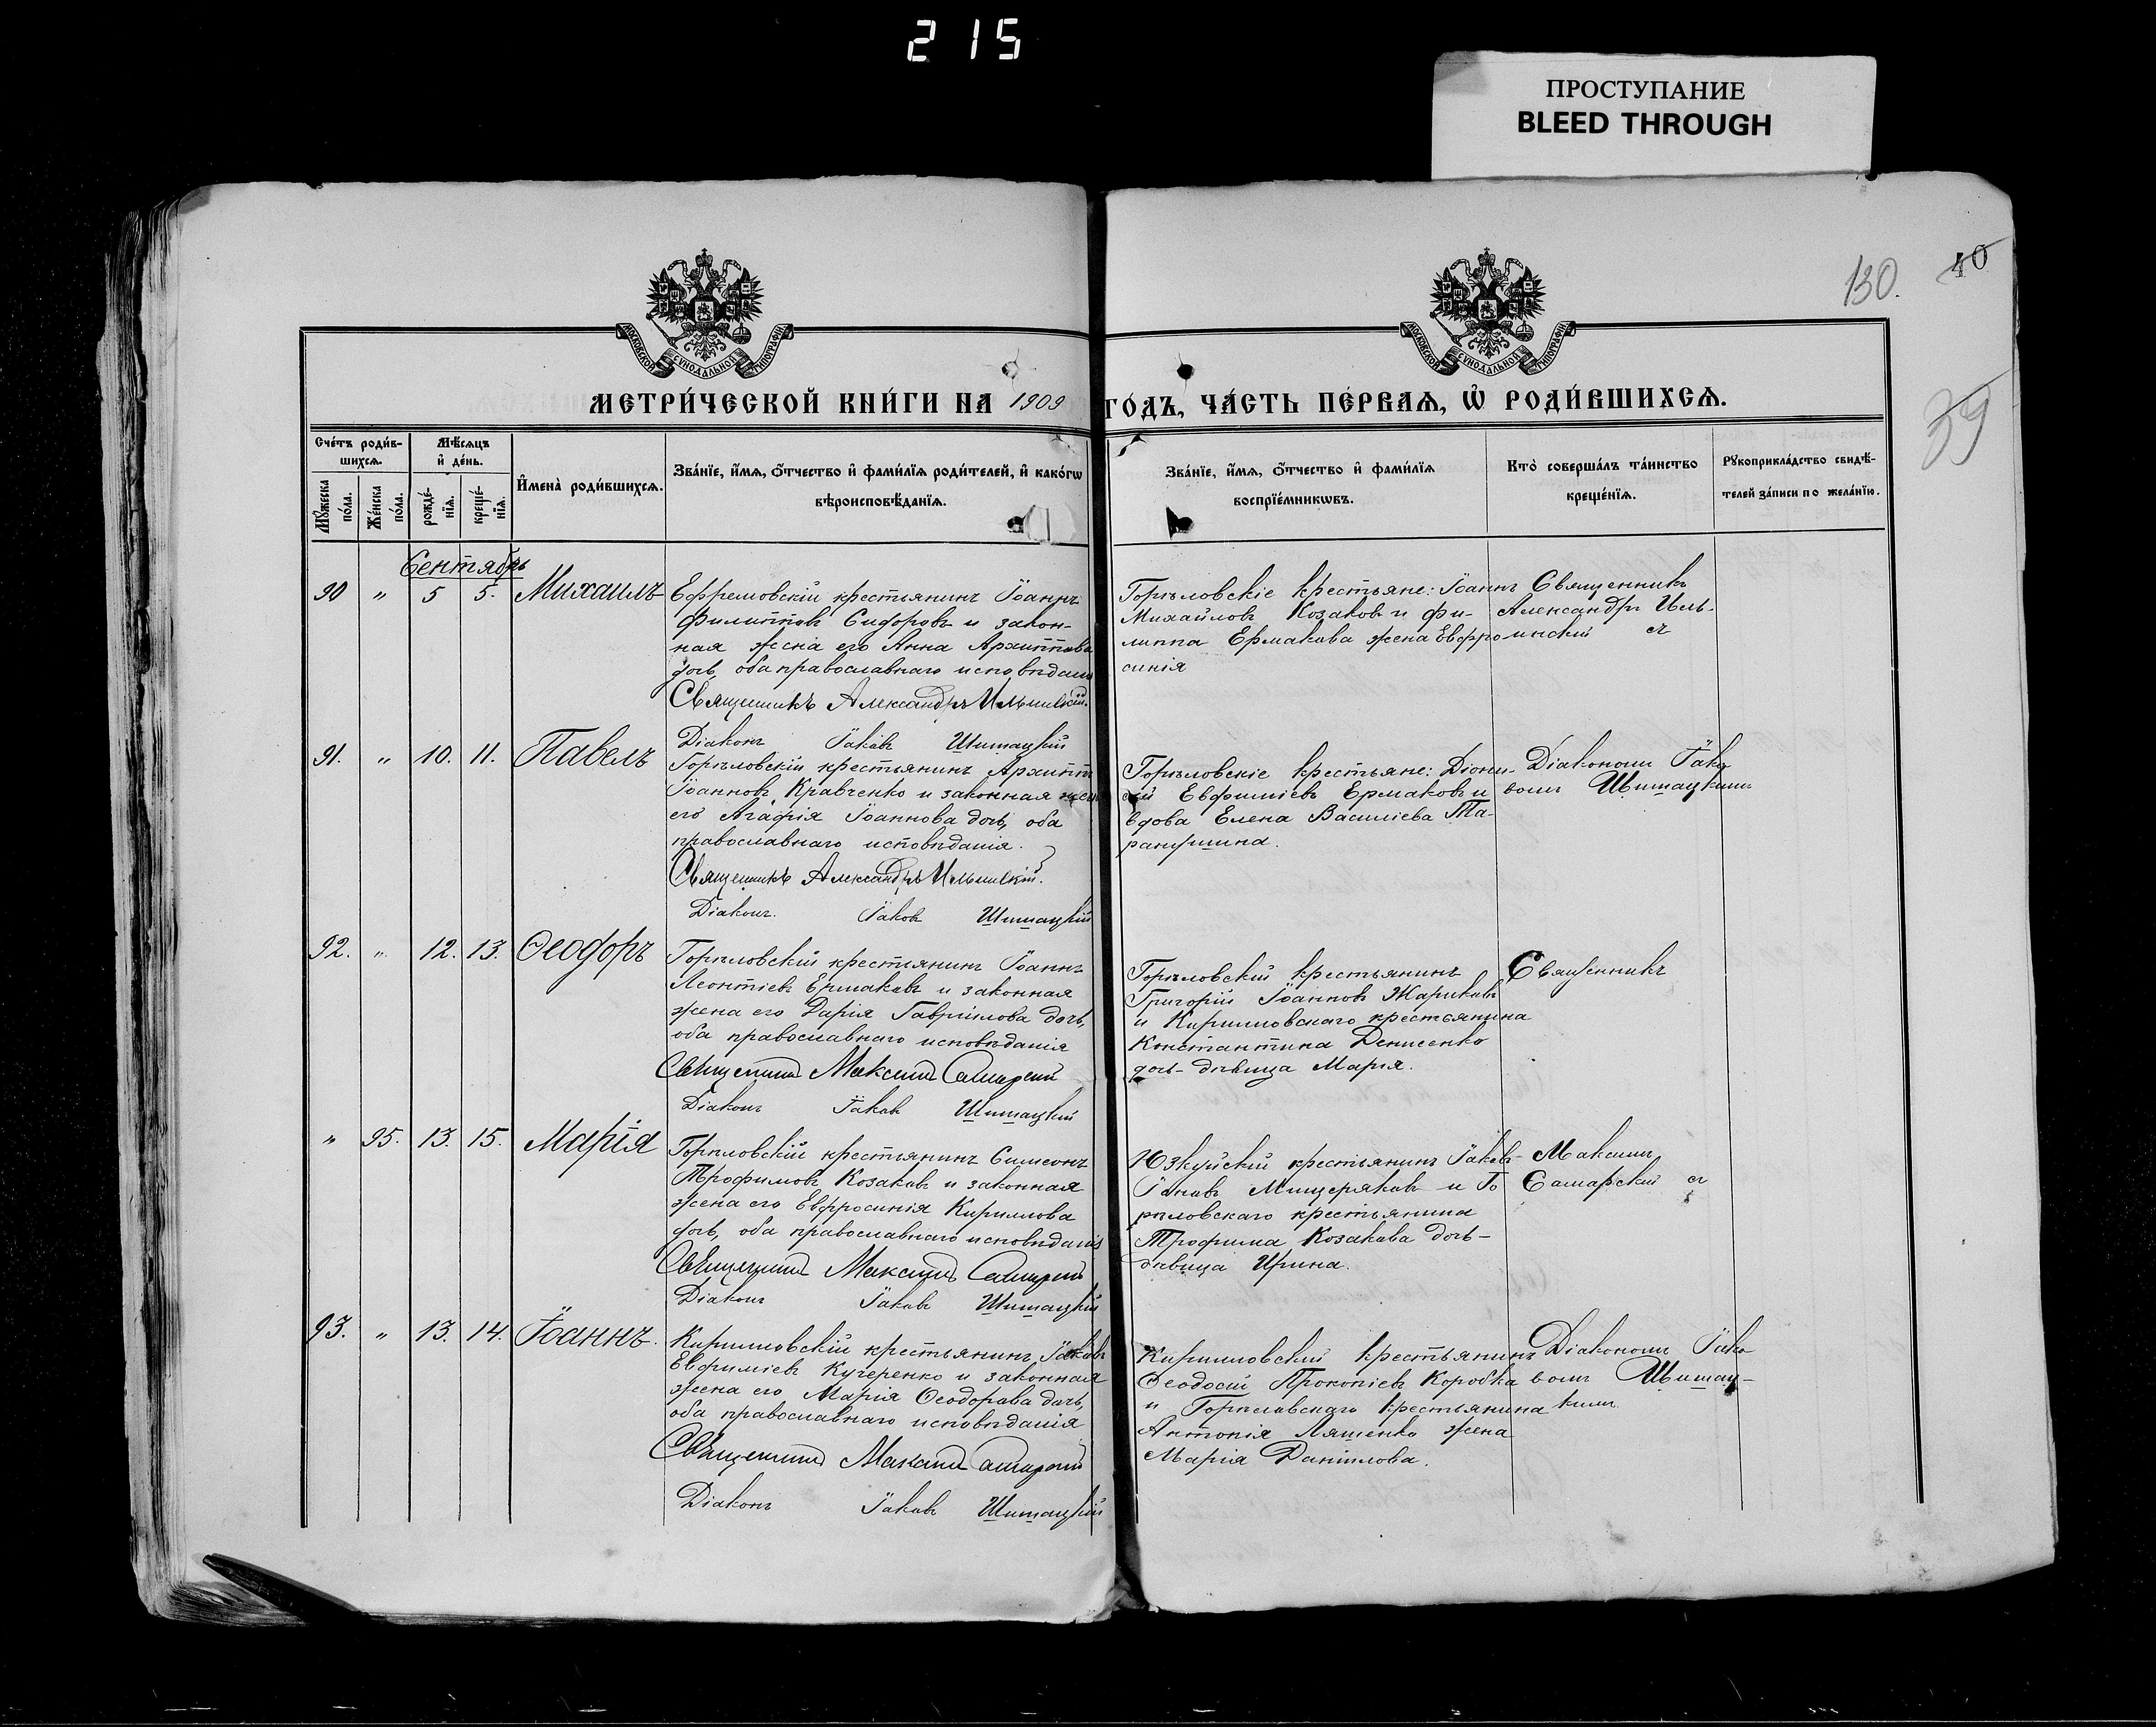 215
ПРОСТУПАНИЕ
BLEED THROUGH
130.
40
39
МОСКОВСКОЙ СУНОДАЛЬНОЙ ТИПОГРАФІИ
МОСКОВСКОЙ СУНОДАЛЬНОЙ ТИПОГРАФІИ
МЕТРИ́ЧЕСКОЙ КНИ́ГИ НА 1909 ГО́ДЪ, ЧА́СТЬ ПЕ́РВАѦ, Ѡ҆ РОДИ́ВШИХСѦ.
Сче́тъ роди́в-
шихсѧ.
Мꙋ́жеска по́ла.
Же́нска по́ла.
Мѣ́сѧцъ
и҆ де́нь.
рожде́-
нїѧ.
креще́-
нїѧ.
И҆мена̀ роди́вшихсѧ.
Зва́нїе, и҆́мѧ, ѻ҆́тчество и҆ фами́лїѧ роди́телей, и҆ како́гѡ
вѣроисповѣ́данїѧ.
Зва́нїе, и҆́мѧ, ѻ҆́тчество и҆ фами́лїѧ
воспрїе́мникѡвъ.
Кто̀ соверша́лъ та́инство
креще́нїѧ.
Рꙋкоприкла́дство свидѣ́-
телей за́писи по жела́нїю.
Сентябрь
90 „ 5 5. Михаилъ
Ефремовскій крестьянинъ Іоаннъ
Филипповъ Сидоровъ и закон-
ная жена его Анна Архиппова
дочь, оба православнаго исповѣданія
Священникъ Александръ Ильинскій.
Діаконъ Іаковъ Шишацкій
Горѣловскіе крестьяне: Іоаннъ
Михайловъ Козаковъ и Фи-
липпа Ермакова жена Евфро
синія
Священникъ
Александръ Иль-
инскій
91. „ 10. 11. Павелъ
Горѣловскій крестьянинъ Архиппъ
Іоанновъ Кравченко и законная жена
его Агафія Іоаннова дочь, оба
православнаго исповѣданія.
Священникъ Александръ Ильинскій.
Діаконъ. Іаковъ Шишацкій
Горѣловскіе крестьяне: Діони-
сій Евфиміевъ Ермаковъ и
вдова Елена Василіева Та-
ранушина.
Діакономъ Іако
вомъ Шишацкимъ
92. „ 12. 13. Ѳеодоръ
Горѣловскій крестьянинъ Іоаннъ
Леонтіевъ Ермаковъ и законная
жена его Дарія Гавріилова дочь,
оба православнаго исповѣданія
Священникъ Максимъ Самарскій
Діаконъ Іаковъ Шишацкій
Горѣловскій крестьянинъ
Григорій Іоанновъ Жариковъ
и Кирилловскаго крестьянина
Константина Денисенко
дочь-дѣвица Марія.
Священникъ
„ 95. 13. 15. Марія
Горѣловскій крестьянинъ Симеонъ
Трофимовъ Козаковъ и законная
жена его Евфросинія Кириллова
дочь, оба православнаго исповѣданія
Священникъ Максимъ Самарскій
Діаконъ Іаковъ Шишацкій
Юзкуйскій крестьянинъ Іаковъ
Іаковъ Мищеряковъ и Го
рѣловскаго крестьянина
Трофима Козакова дочь-
дѣвица Ирина.
Максимъ
Самарскій
93. „ 13. 14. Іоаннъ.
Кирилловскій крестьянинъ Іаковъ
Евфиміевъ Кучеренко и законная
жена его Марія Ѳеодорова дочь,
оба православнаго исповѣданія
Священникъ Максимъ Самарскій
Діаконъ Іаковъ Шишацкій
Кирилловскій крестьянинъ
Ѳеодосій Прокопіевъ Коробка
и Горѣловскаго крестьянина
Антонія Ляшенко жена
Марія Даніилова.
Діакономъ Іако
вомъ Шишац-
кимъ.